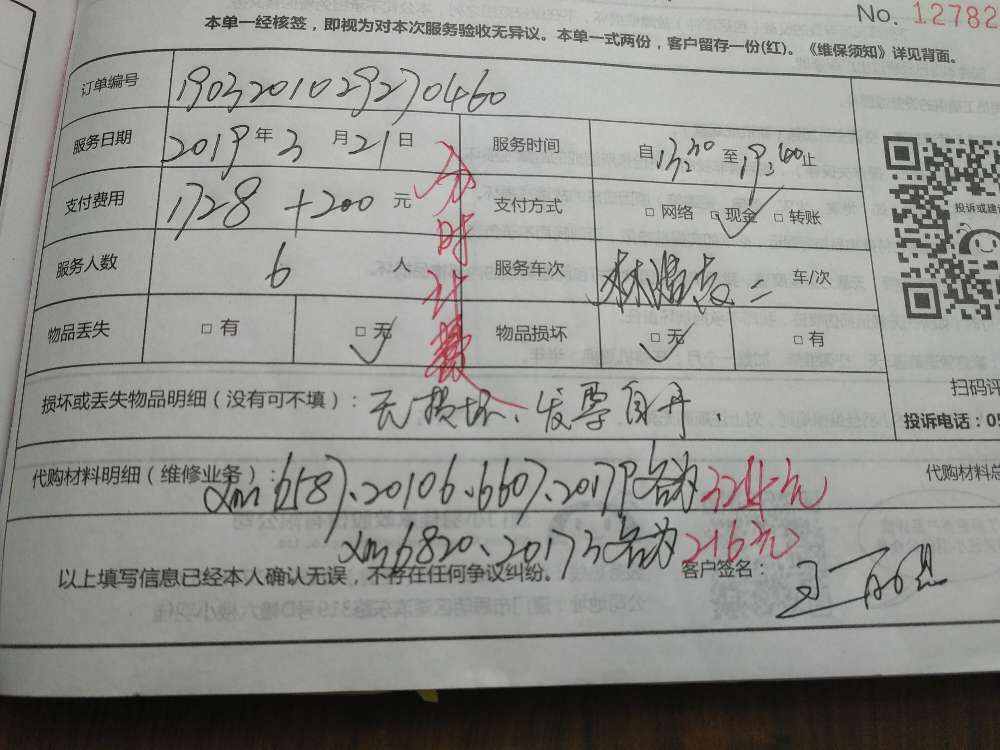 No. 12782
本单一经核签，即视为对本次服务验收无异议。本单一式两份，客户留存一份(红)。《维保须知》详见背面。
订单编号 1903201029270460
服务日期 2019 年 3 月 21 日 服务时间 自 13:30 至 19:00 止
支付费用 1728 + 200 元 支付方式 □ 网络 □ 现金 □ 转账
分时计费
投诉或建
服务人数 6 服务车次 车/次
物品丢失 □ 有 □ 无 物品损坏 □ 无 □ 有
扫码评
损坏或丢失物品明细（没有可不填）： 无损坏、发票自开、
投诉电话：05
代购材料明细（维修业务）： 代购材料总
6587、20106、6607、20179 各为 324元
6820、20173 各为 216元
以上填写信息已经本人确认无误，不存在任何争议纠纷。 客户签名：